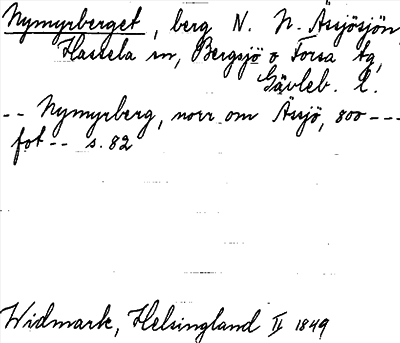 Nymyrberget, berg N. N. Årsjösjön
Hassela sn, Bergsjö o Forsa tg,
Gävleb. l.
-- Nymyrberg, norr om Årsjö, 800 ---
fot -- s. 82
Widmark, Helsingland II 1849